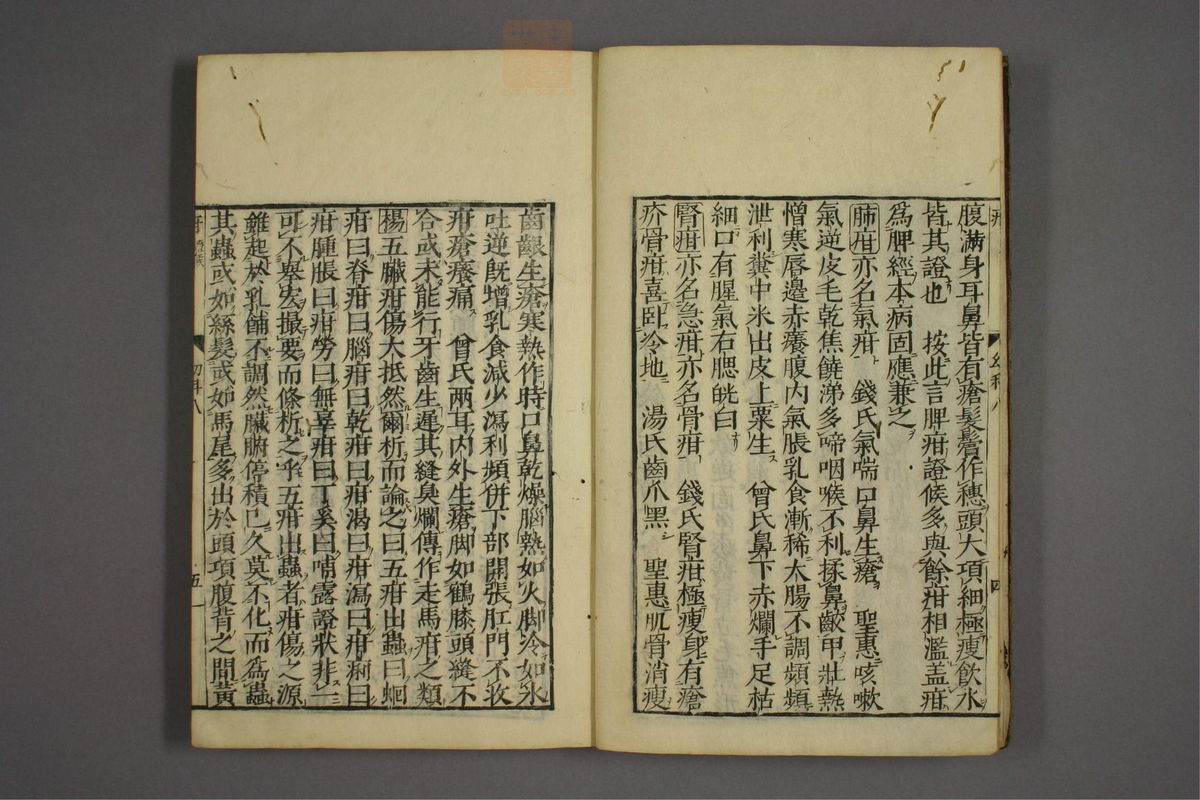 腹滿身耳鼻皆有瘡髮鬢作穗頭大項細極瘦飲水
皆其證也　按此言脾疳證候多與餘疳相濫盖疳
爲脾經本病固應兼之
肺疳亦名氣疳　錢氏氣喘口鼻生瘡　聖惠咳嗽
氣逆皮毛乾焦饒涕多啼咽喉不利揉鼻齩甲壯熱
憎寒唇邊赤癢腹内氣脹乳食漸稀大腸不調頻頻
泄利糞中米出皮上粟生　曾氏鼻下赤爛手足枯
細口有腥氣右腮㿠白
腎疳亦名急疳亦名骨疳　錢氏腎疳極瘦身有瘡
疥骨疳喜臥冷地　湯氏齒爪黑　聖惠肌骨消瘦
幼科八
四
齒齦生瘡寒熱作時口鼻乾燥腦熱如火脚冷如氷
吐逆既增乳食減少瀉利頻併下部開張肛門不收
疳瘡癢痛　曾氏兩耳内外生瘡脚如鶴膝頭縫不
合或未能行牙齒生遲其縫臭爛傳作走馬疳之類
楊五臟疳傷大抵然爾析而論之曰五疳出蟲曰蛔
疳曰脊疳曰腦疳曰乾疳曰疳渴曰疳瀉曰疳痢曰
疳腫脹曰疳勞曰無辜疳曰丁奚曰哺露證狀非一
可不舉宏撮要而條析之乎五疳出蟲者疳傷之源
雖起於乳餔不調然臟腑停積已久莫不化而爲蟲
其蟲或如絲髮或如馬尾多出於頭項腹背之間黄
幼科八
五